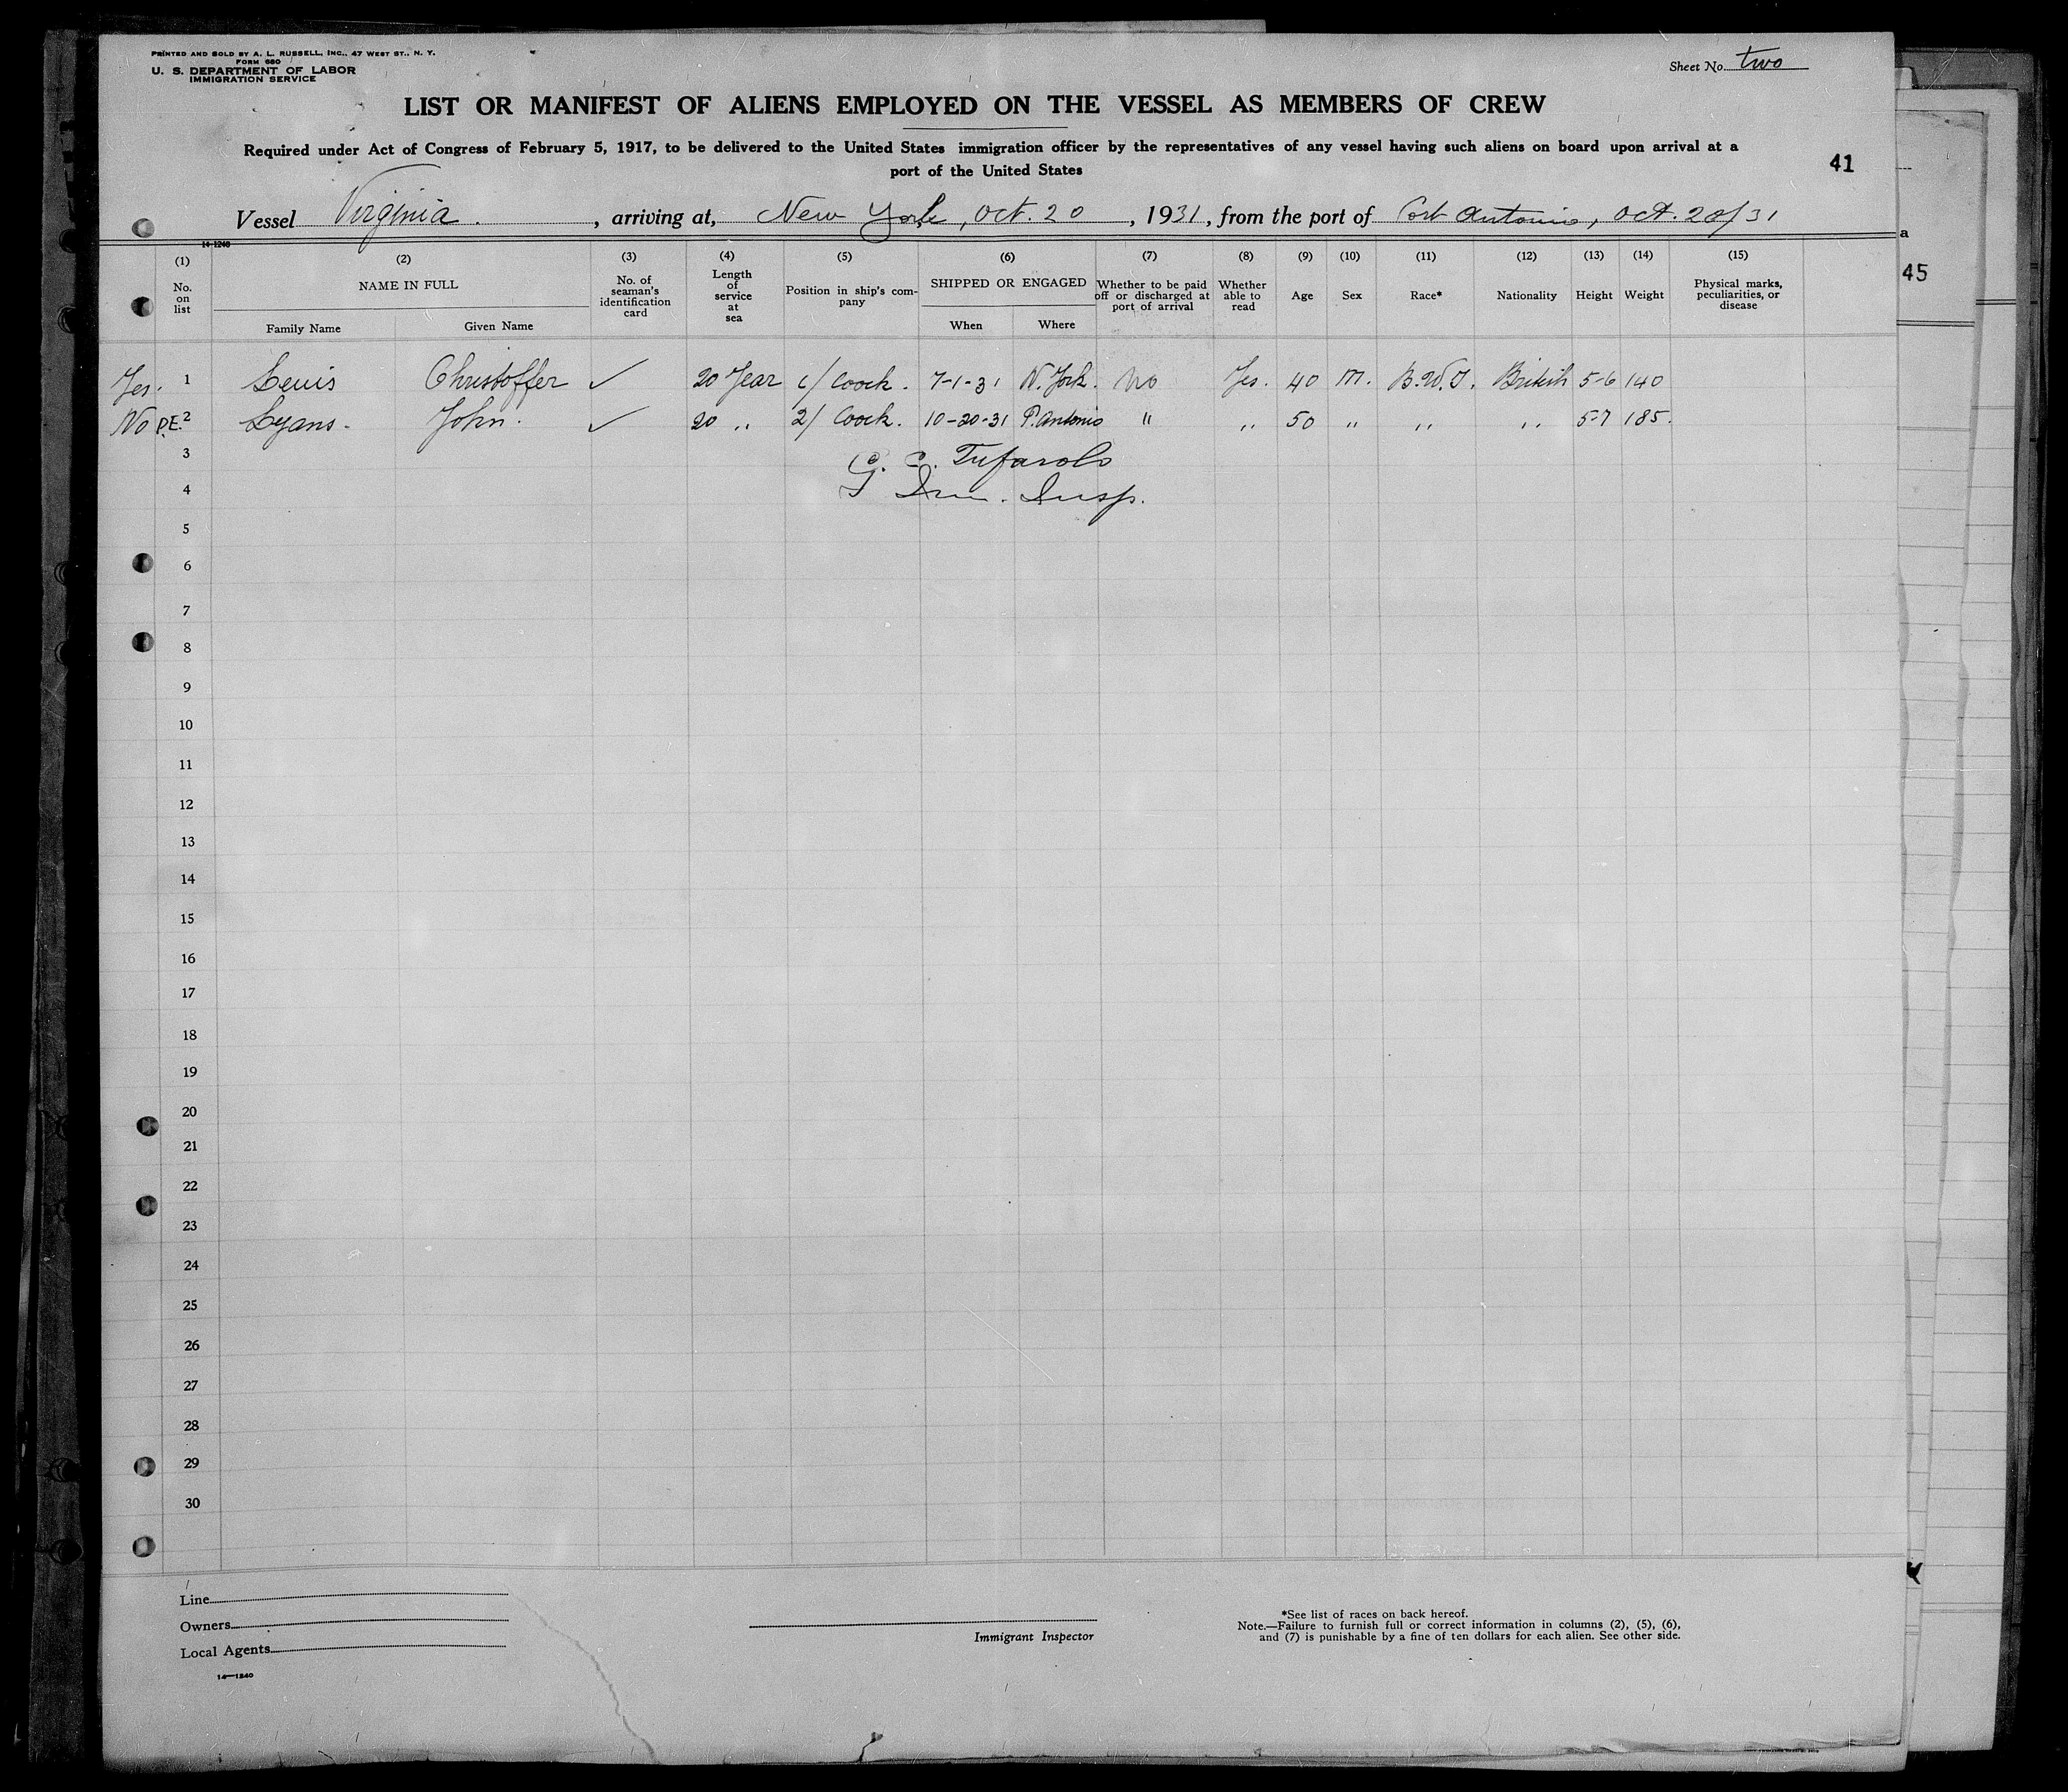 PRINTED AND SOLD BY A. L. RUSSELL, INC., 47 WEST ST., N. Y.
FORM 680
U. S. DEPARTMENT OF LABOR
IMMIGRATION SERVICE
Sheet No. two
LIST OR MANIFEST OF ALIENS EMPLOYED ON THE VESSEL AS MEMBERS OF CREW
Required under Act of Congress of February 5, 1917, to be delivered to the United States immigration officer by the representatives of any vessel having such aliens on board upon arrival at a
port of the United States
41
Vessel Virginia., arriving at, New York, Oct. 20, 1931, from the port of Port Antonio, Oct. 20/31
a
45
14-1240
(1) (2) (3) (4) (5) (6) (7) (8) (9) (10) (11) (12) (13) (14) (15)
No. on list
NAME IN FULL
Family Name
Given Name
No. of seaman's identification card
Length of service at sea
Position in ship's company
SHIPPED OR ENGAGED
When
Where
Whether to be paid off or discharged at port of arrival
Whether able to read
Age
Sex
Race*
Nationality
Height
Weight
Physical marks, peculiarities, or disease
Yes. 1 Lewis Christoffer ✓ 20 Year c/ Coock. 7-1-31 N. York. No Yes. 40 M. B.W.I. British 5-6 140
No P.E. 2 Lyans. John. ✓ 20 " 2/ Coock. 10-20-31 P. Antonio " " 50 " " " 5-7 185.
3
4 Imm. Insp.
5
6
7
8
9
10
11
12
13
14
15
16
17
18
19
20
21
22
23
24
25
26
27
28
29
30
Line
Owners
Local Agents
14—1240
Immigrant Inspector
*See list of races on back hereof.
Note.—Failure to furnish full or correct information in columns (2), (5), (6),
and (7) is punishable by a fine of ten dollars for each alien. See other side.